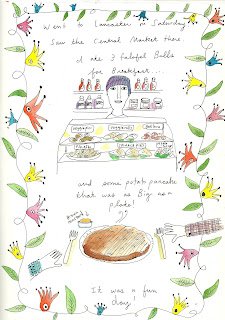 Went to Lancaster on Saturday
Saw the Central Market there.
I ate 3 falafel Balls
for Breakfast...
and some potato pancake
that was as Big as a
plate!
It was a fun
day.